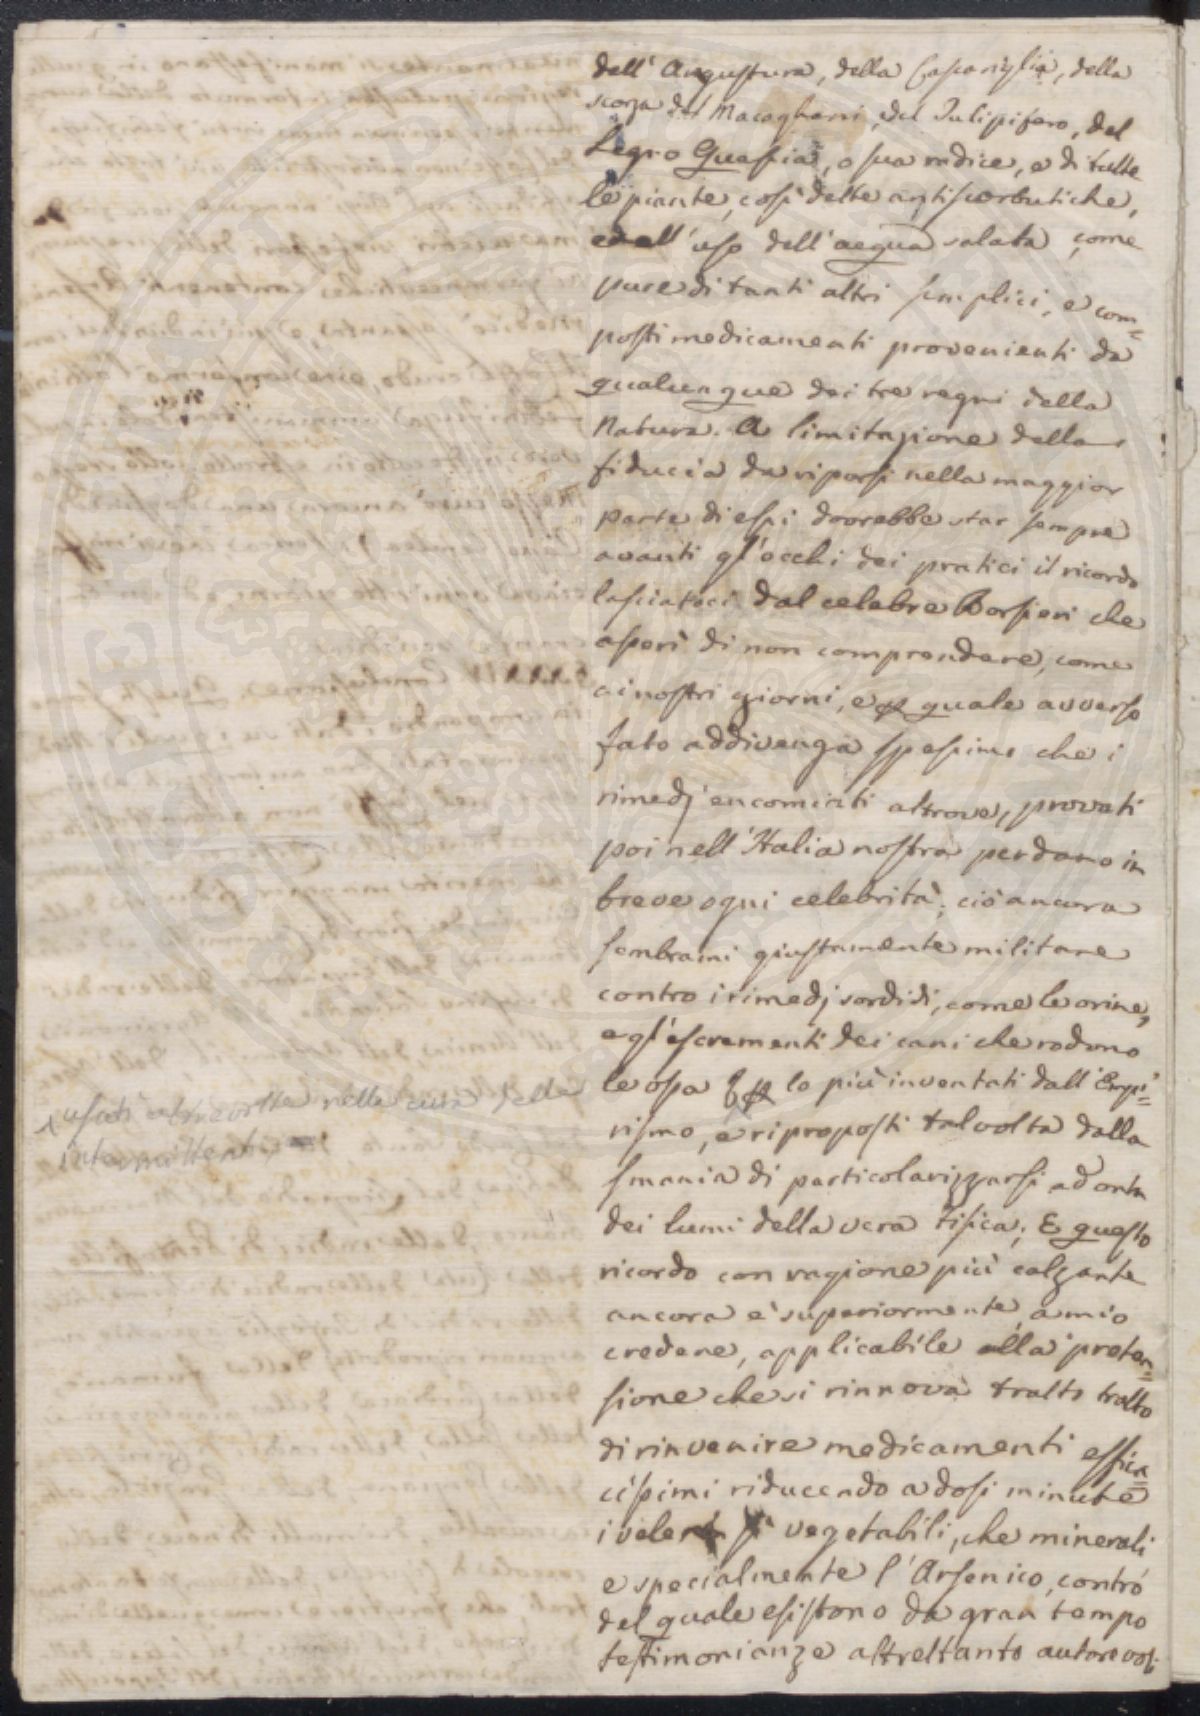 dell' Angustura, della Cascariglia, della
scorza del Macoghani, del Tulipifero, del
Legno Quassia, o sua radice, e di tutte
le piante, così dette antiscorbutiche,
e dell' uso dell' acqua salata come
pure di tanti altri semplici, e com=
posti medicamenti provenienti da
qualunque dei tre regni della
Natura. A limitazione della
fiducia da riporsi nella maggior
parte di essi dovrebbe star sempre
avanti gl'occhi dei pratici il ricordo
lasciatoci dal celebre Borsieri che
asserì di non comprendere, come
ai nostri giorni, e quale avverso
fato addivenga spessimo che i
rimedj encomiati altrove, provati
poi nell'Italia nostra perdano in
breve ogni celebrità; ciò ancora
sembrami giustamente militare
contro i rimedj sordidi, come le orine,
e gl'escrementi dei cani che rodono
le ossa lo più inventati dall' Empi=
x usati altre volte nella cura delle
intermittenti,
rismo, e riproposti talvolta dalla
smania di particolarizzarsi ad onta
dei lumi della vera Fisica; E questo
ricordo con ragione più calzante
ancora e superiormente, a mio
credere, applicabile alla preten=
sione che si rinnova tratto tratto
di rinvenire medicamenti effica=
cissimi riducendo a dosi minute
i veleni sì vegetabili, che minerali
e specialmente l'Arsenico, contro
del quale esistono da gran tempo
testimonianze altrettanto autorevoli